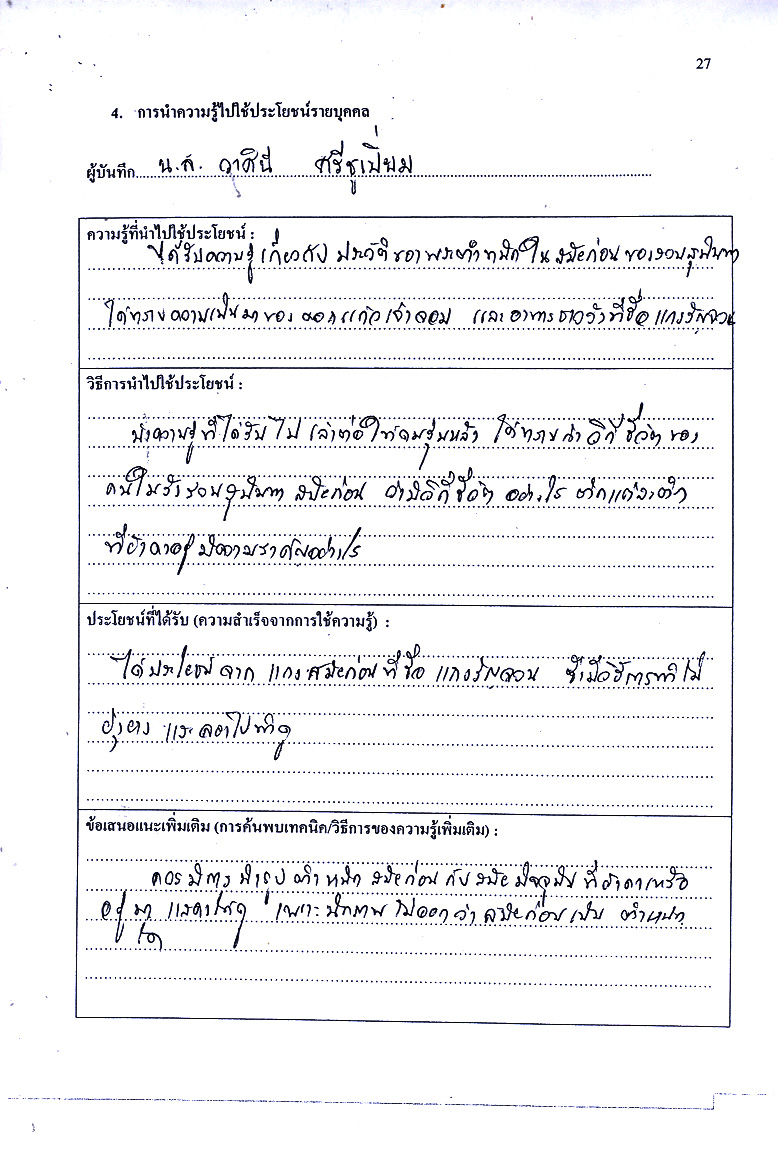 27
4. การนำความรู้ไปใช้ประโยชน์รายบุคคล
ผู้บันทึก น.ส. วาศินี ศรีชูเปี่ยม
ความรู้ที่นำไปใช้ประโยชน์ :
ได้รับความรู้ เกี่ยวกับ ประวัติของพระตำหนักใน สมัยก่อน ของสวนสุนันทา
ได้ทราบความเป็นมาของ ดอกแก้วเจ้าจอม และอาหารชาววังที่ชื่อ แกงรัญจวน
วิธีการนำไปใช้ประโยชน์ :
นำความรู้ที่ได้รับไป เล่าต่อให้คนรุ่นหลัง ได้ทราบว่า วิถีชีวิตของ
คนในวังสวนสุนันทา สมัยก่อน ว่ามีวิถีชีวิต อย่างไร ตึกแต่ละตึก
ที่ยังคงอยู่ มีความสำคัญอย่างไร
ประโยชน์ที่ได้รับ (ความสำเร็จจากการใช้ความรู้) :
ได้ประโยชน์จาก แกงสมัยก่อนที่ชื่อ แกงรัญจวน ซึ่งมีวิธีการทำไม่
ยุ่งยาก และลองไปทำดู
ข้อเสนอแนะเพิ่มเติม (การค้นพบเทคนิค/วิธีการของความรู้เพิ่มเติม) :
ควรมีการนำรูปตำหนัก สมัยก่อน กับ สมัยปัจจุบัน ที่ยังคงเหลือ
อยู่ มา แสดงให้ดู เพราะนึกภาพ ไม่ออกว่า สมัยก่อนเป็น ตำหนัก
ใด